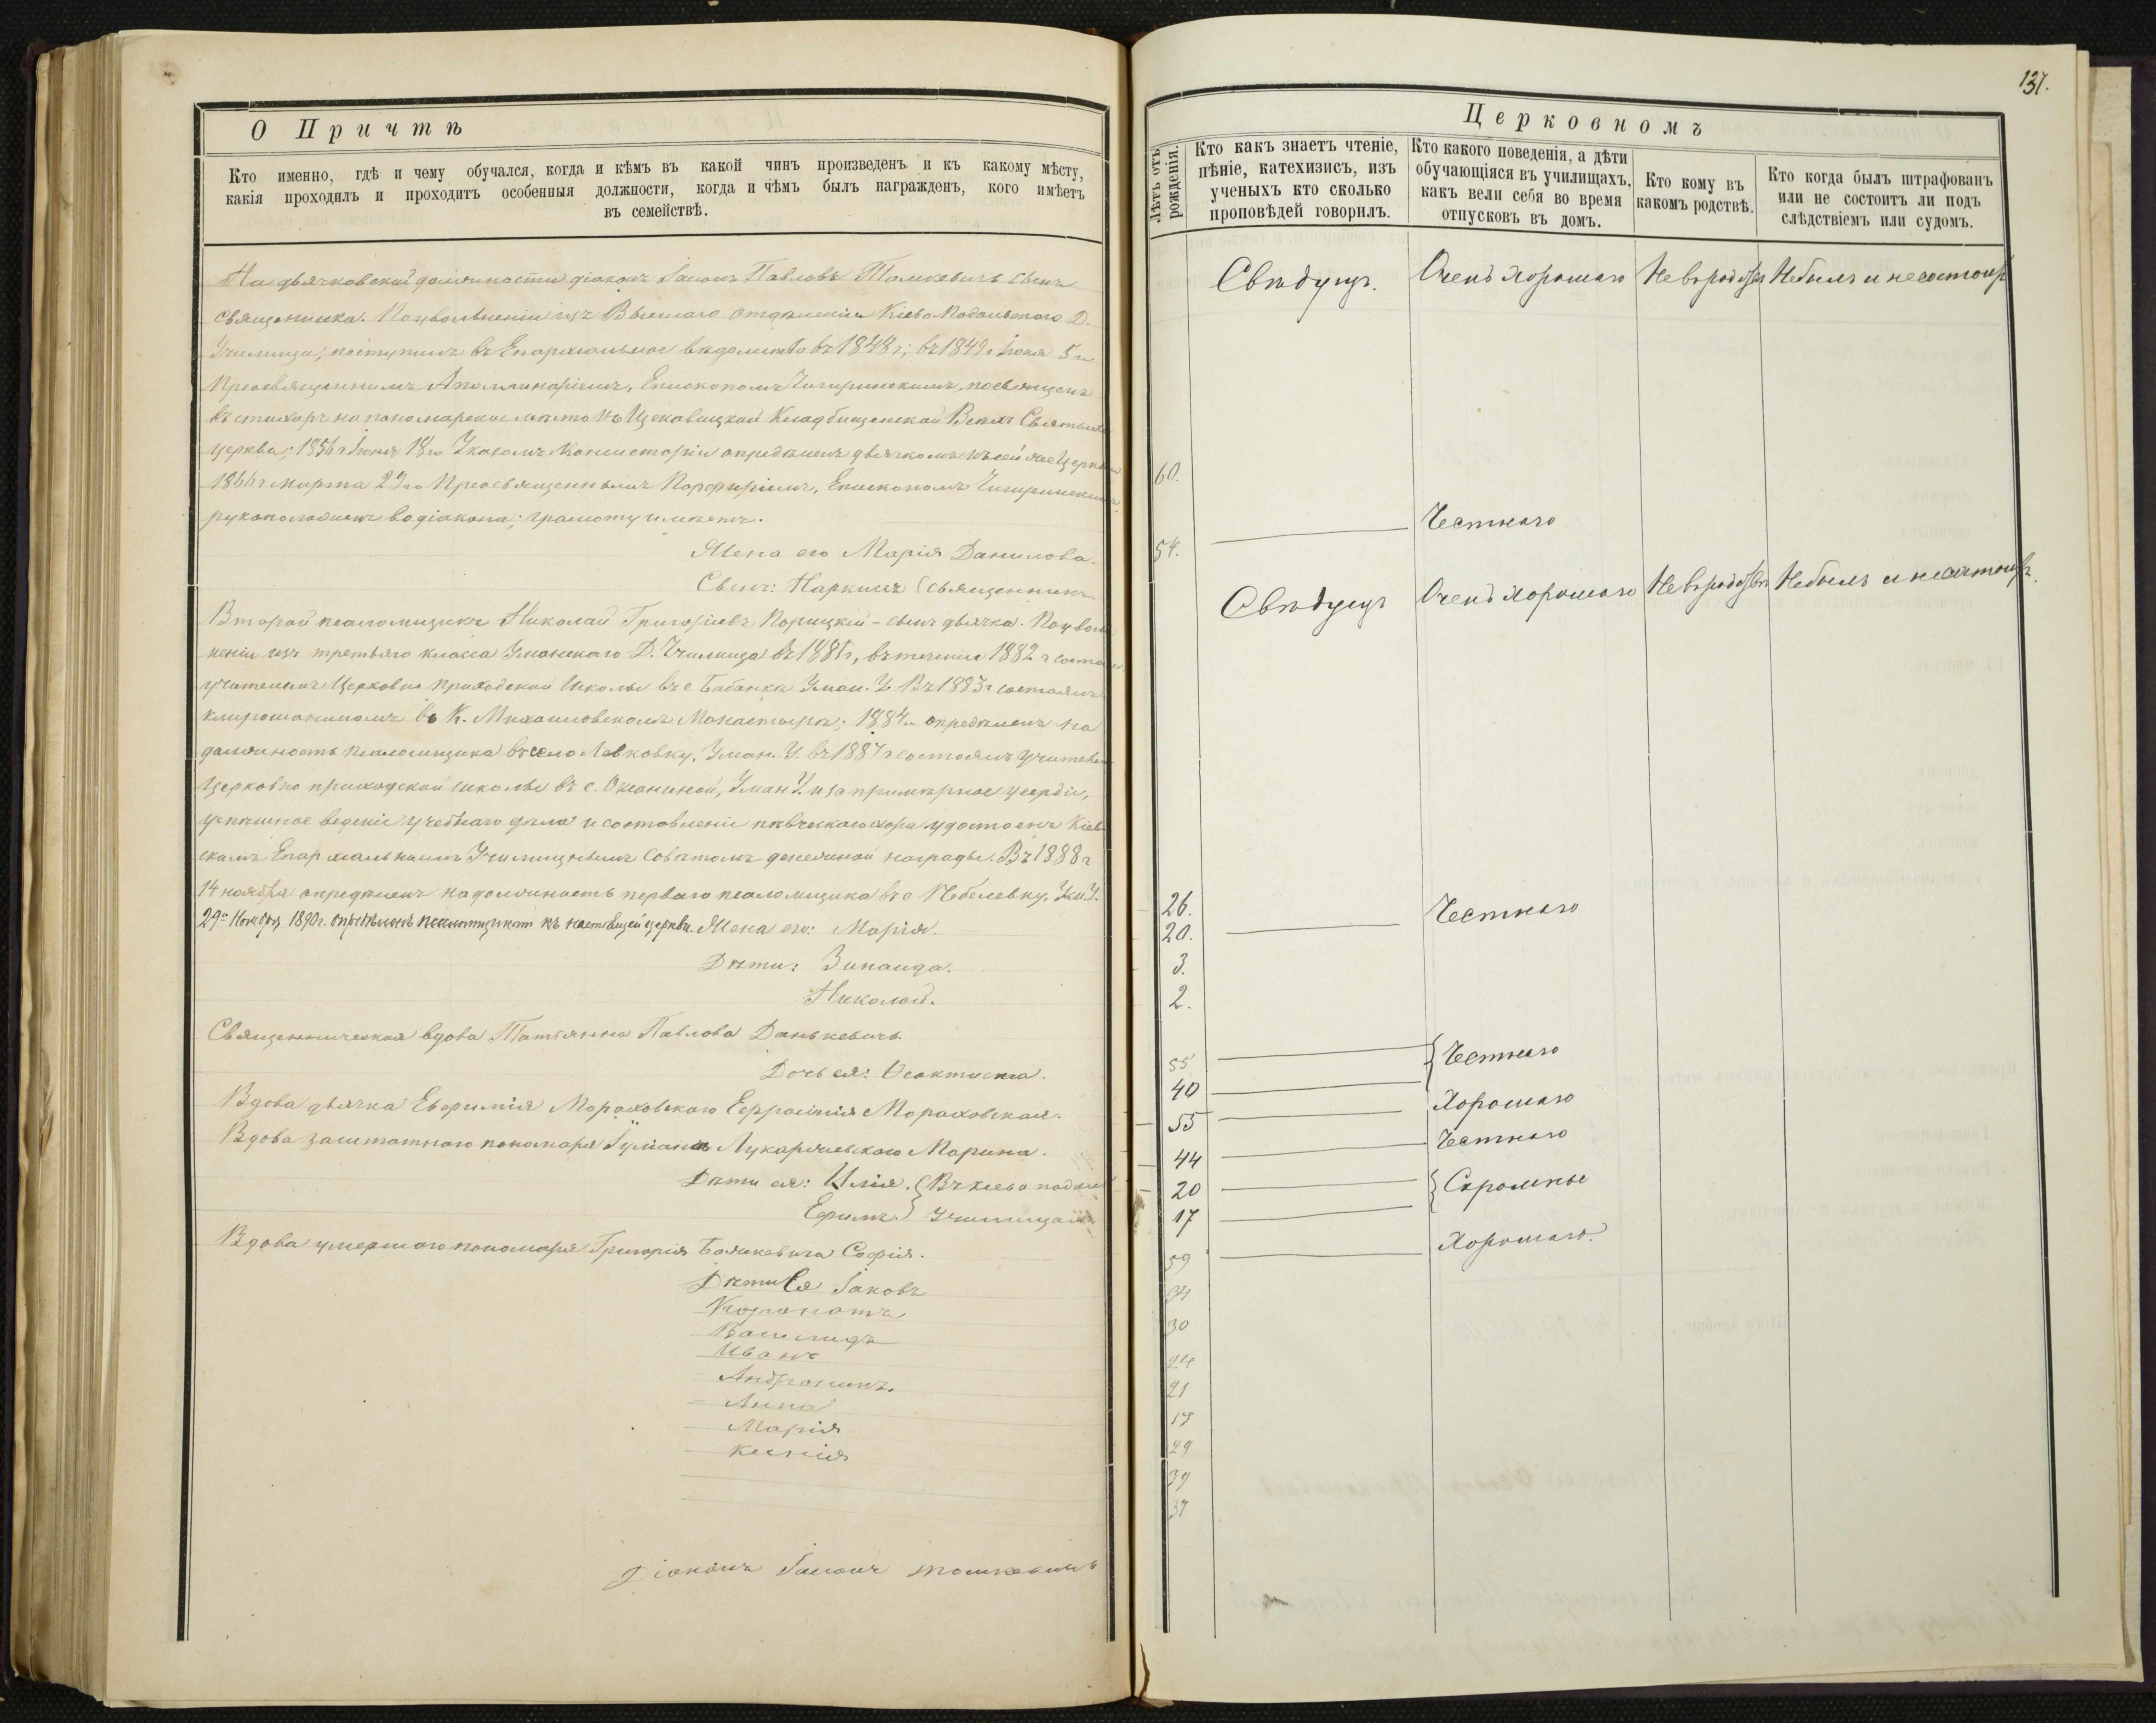 О Причтѣ
Кто именно, гдѣ и чему обучался, когда и кѣмъ въ какой чинъ произведенъ и къ какому мѣсту,
какія проходилъ и проходитъ особенныя должности, когда и чѣмъ былъ награжденъ, кого имѣетъ
въ семействѣ.
На дьячковской должности діаконъ Іасонъ Павловъ Томкевичъ сынъ
священника. По увольненіи изъ Высшаго отдѣленія Кіево Подольскаго Д.
Училища, поступилъ въ Епархіальное вѣдомство въ 1848 г; въ 1849 г Іюня 5 го
Преосвященнымъ Аполлинаріемъ, Епископомъ Чигиринскимъ посвященъ
въ стихарь на пономарское мѣсто къ Щекавицкой Кладбищенской Всѣхъ Святыхъ
церкви; 1856 г Іюня 18 го Указомъ Консисторіи опредѣленъ дьячкомъ къ сей же Церкви
1866 г марта 29 го Преосвященнымъ Порфиріемъ, Епископомъ Чигиринскимъ
рукоположенъ во діакона; грамоту имѣетъ.
Жена его Марія Данилова.
Сынъ: Наркисъ (священникъ
Второй псаломщикъ Николай Григоріевъ Порицкій - сынъ дьячка. По уволь
неніи изъ третьяго класса Уманскаго Д. Училища въ 1881 г, въ теченіи 1882 г состоялъ
учителемъ Церковно приходской школы въ с Бабанкѣ Уман. У. Въ 1883 г состоялъ
клирошаниномъ въ К. Михайловскомъ Монастырѣ; 1884 г опредѣленъ на
должность псаломщика въ село Левковку, Уман. У. въ 1887 г состоялъ учителемъ
Церковно приходской школы въ с. Оксаниной, Уман У. и за примѣрное усердіе,
успѣшное веденіе учебнаго дѣла и составленіе пѣвческаго хора удостоенъ Кіев
скимъ Епархіальнымъ Училищнымъ Совѣтомъ денежной награды. Въ 1888 г
14 ноября опредѣленъ на должность перваго псаломщика въ с Небелевку, Ум У.
29го Ноября 1890 г. опредѣленъ псаломщикомъ къ настоящей церкви. Жена его: Марія.
Дѣти: Зинаида.
Николай.
Священническая вдова Татьянна Павлова Данькевичъ.
Дочь ея: Ѳеоктиста.
Вдова дьячка Евфимія Мораховскаго Ефросинія Мораховская.
Вдова заштатного пономаря Іуліана Лукаршевскаго Марина.
Дѣти ея: Илія. (Въ Кіево подол
Ефимъ.) училищахъ
Вдова умершаго пономаря Григорія Божкевича Софія.
Дѣти Ея Іаковъ
Коронатъ
Василидъ
Иванъ
Андроникъ.
Анна
Марія
Ксенія
Діаконъ Іасонъ Томкевичъ
137.
Церковномъ
Лѣтъ отъ рожденія.
Кто какъ знаетъ чтеніе,
пѣніе, катехизисъ, изъ
ученыхъ кто сколько
проповѣдей говорилъ.
Кто какого поведенія, а дѣти
обучающіяся въ училищахъ,
какъ вели себя во время
отпусковъ въ домъ.
Кто кому въ
какомъ родствѣ.
Кто когда былъ штрафованъ
или не состоитъ ли подъ
слѣдствіемъ или судомъ.
Свѣдущъ. Очень хорошаго Не въ родствѣ Не былъ и не состоитъ
60.
Честнаго
54.
Свѣдущъ Очень хорошаго Не въ родствѣ Не былъ и не состоитъ.
26.
20. Честнаго
3.
2.
55 Честнаго
40
55 Хорошаго
44 Честнаго
20 Скромные
17
59 Хорошаго.
34
30
24
21
19
29
39
37